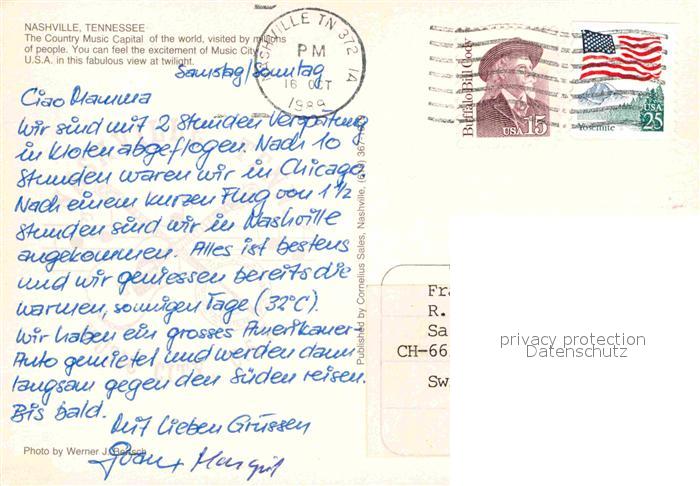 NASHVILLE, TENNESSEE
The Country Music Capital of the world, visited by millions
of people. You can feel the excitement of Music City
U.S.A. in this fabulous view at twilight.
NASHVILLE TN 372
PM
16 OCT
1989
Buffalo Bill Cody
USA 15
Yosemite
USA
25
Samstag/Sonntag
Ciao Mamma
Wir sind mit 2 Stunden Verspätung
in Kloten abgeflogen. Nach 10
Stunden waren wir in Chicago.
Nach einem kurzen Flug von 1 1/2
Stunden sind wir in Nashville
angekommen. Alles ist bestens
und wir geniessen bereits die
warmen, sonnigen Tage (32°C).
Wir haben ein grosses Amerikaner-
Auto gemietet und werden dann
langsam gegen den Süden reisen.
Bis bald.
Mit Lieben Grüssen
+ Margrit
Photo by Werner J.
Published by Cornelius Sales, Nashville, (615) 367-
Fr
R.
Sa
CH-66
Sw
privacy protection
Datenschutz